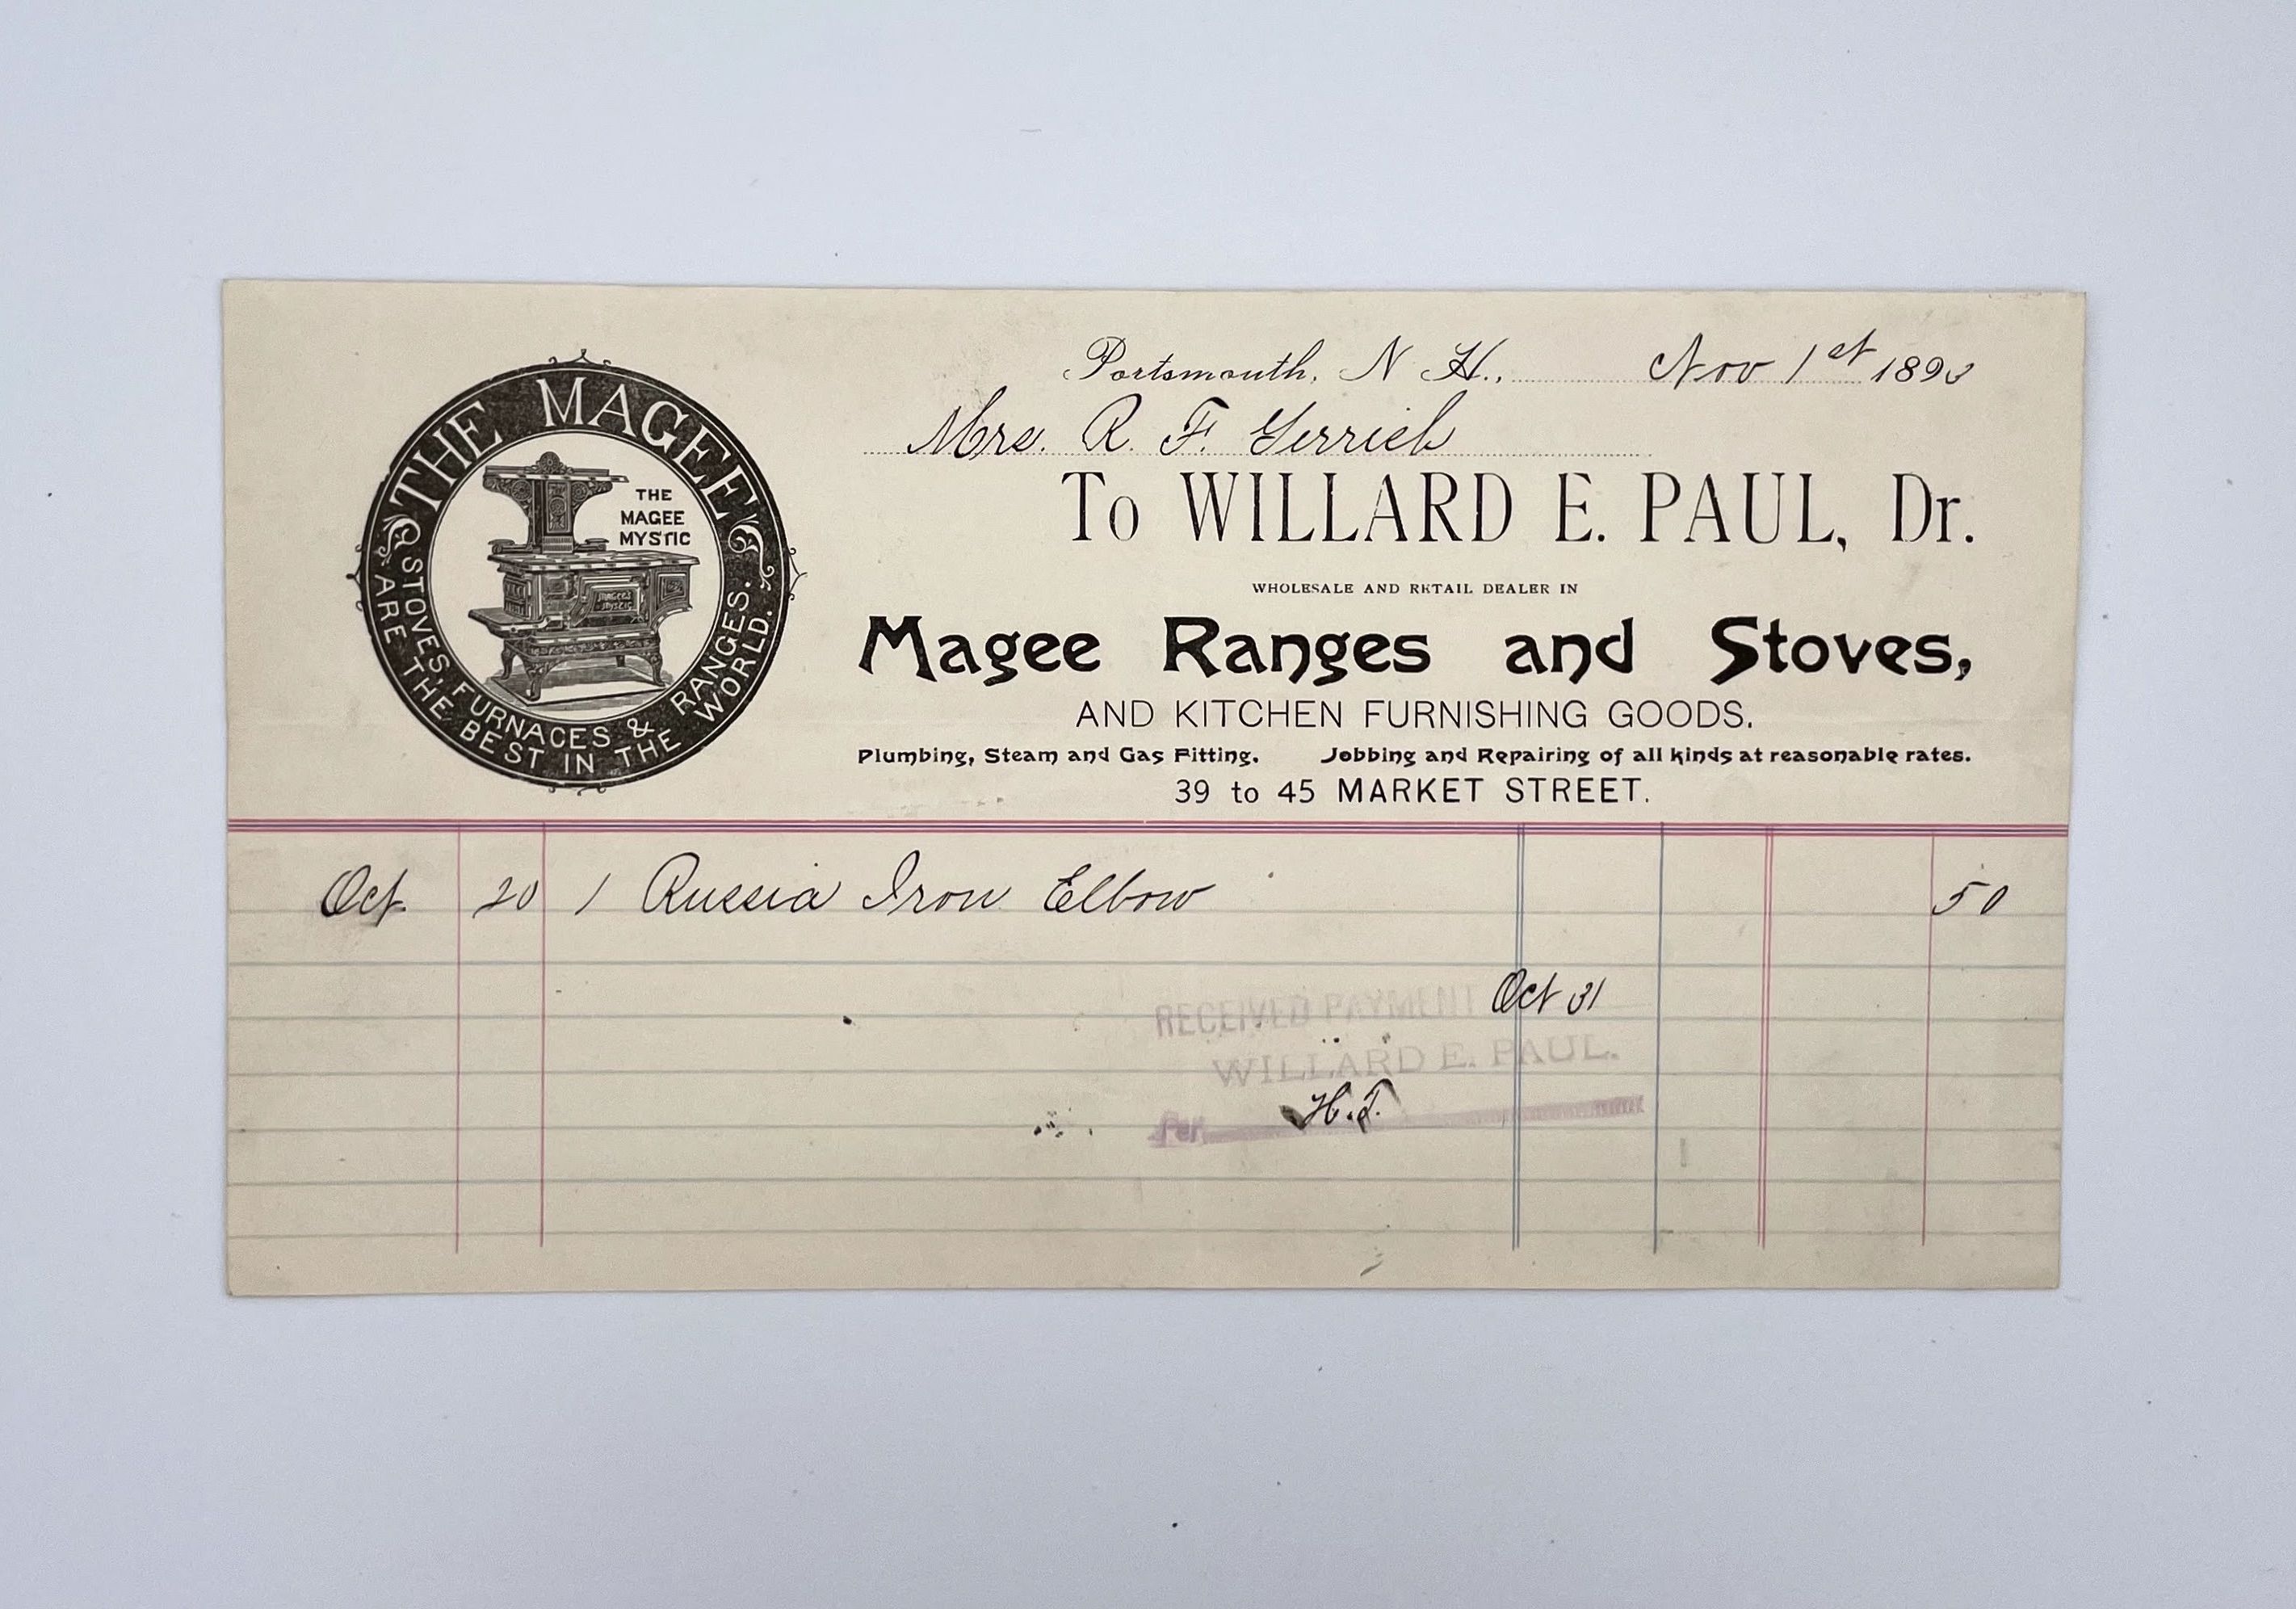 THE MAGEE
STOVES, FURNACES & RANGES.
ARE THE BEST IN THE WORLD.
THE
MAGEE
MYSTIC
MAGEES
MYSTIC
Portsmouth, N. H., Nov 1st 1893
Mrs. R. F. Gerrish
To WILLARD E. PAUL, Dr.
WHOLESALE AND RETAIL DEALER IN
Magee Ranges and Stoves,
AND KITCHEN FURNISHING GOODS.
Plumbing, Steam and Gas Fitting. Jobbing and Repairing of all kinds at reasonable rates.
39 to 45 MARKET STREET.
Oct 20 1 Russia Iron Elbow 50
RECEIVED PAYMENT Oct 31
WILLARD E. PAUL.
Per H.T.